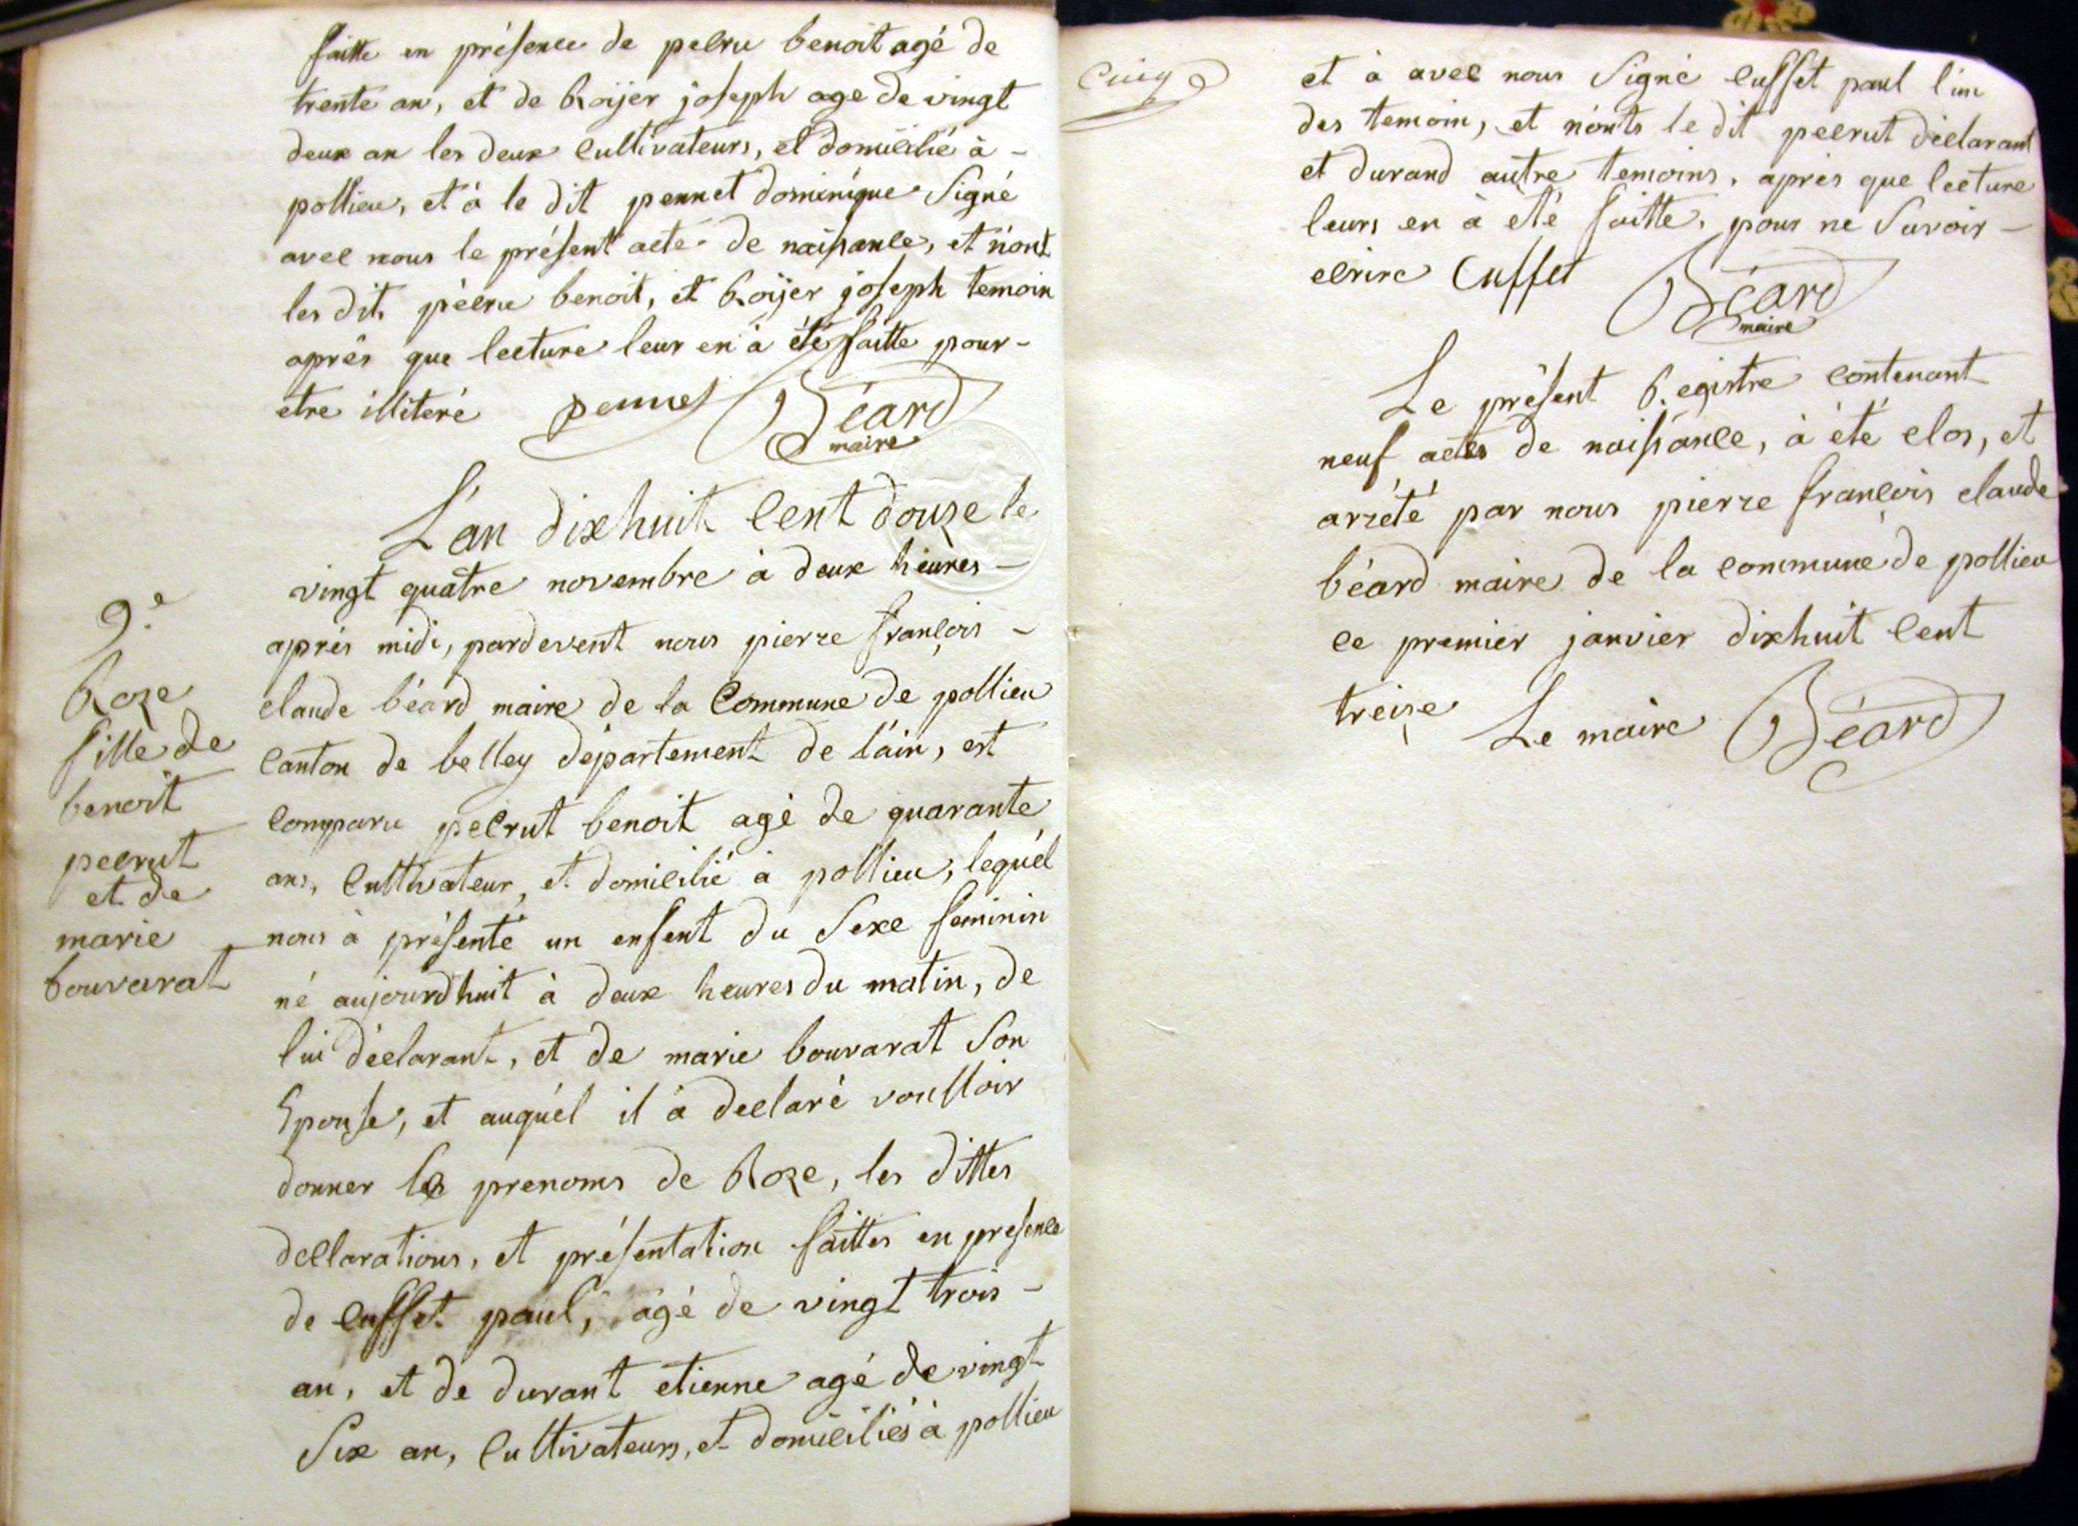 faitte en présence de pecru benoit agé de
trente an, et de Roijer joseph age de vingt
deux an les deux cultivateurs, et domicilié à -
pollieu, et à le dit pennet dominique Signé
avec nous le présent acte de naissance, et n'ont
les dit pécru benoit, et Roijer joseph temoin
aprés que lecture leur en à été faitte pour -
etre illiteré pennet Béard
maire
L'an dixhuit Cent douze le
vingt quatre novembre à deux heures -
aprés midi, pardevent nous pierre françois -
claude béard maire de la Commune de pollieu
Canton de belley département de l'ain, est
comparu pecrut benoit agé de quarante
ans, Cultivateur, et domicilié à pollieu, lequél
nous à présenté un enfent du Sexe feminin
né aujourdhuit à deux heures du matin, de
lui déclarant, et de marie bouvarat Son
Epouse, et auquél il à declaré voulloir
donner le prenoms de Roze, les dittes
declarations, et présentation faittes en presence
de Cusset paul, agé de vingt trois -
an, et de durant etienne agé de vingt
Six an, Cultivateurs, et domiciliés à pollieu
9.e
Roze
fille de
benoit
pecrut
et de
marie
bouvarat
Cinq
et à avec nous Signé Cusset paul l'un
des temoin, et n'onts le dit pecrut déclarant
et durand autre temoins, aprés que lecture
leurs en à eté faitte, pour ne Savoir -
ecrire Cusset Béard
maire
Le présent Registre contenant
neuf actes de naissance, à été clos, et
arrété par nous pierre françois claude
béard maire de la commune de pollieu
ce premier janvier dixhuit Cent
treize Le maire Béard